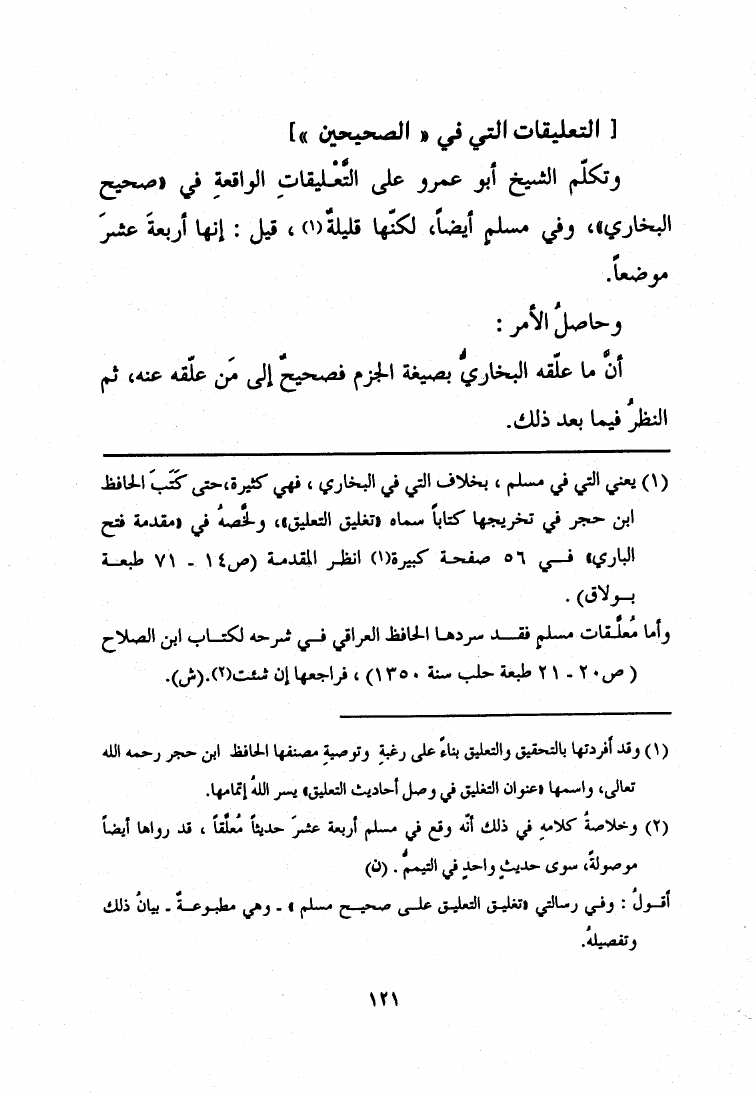 [ التعليقات التي في « الصحيحين » ]
وتكلّم الشيخ أبو عمرو على التَّعْليقاتِ الواقعةِ في «صحيح
البخاري»، وفي مسلمٍ أيضاً، لكنّها قليلةٌ(١) ، قيل : إنها أربعةَ عشرَ
موضعاً.
وحاصلُ الأمر :
أنَّ ما علّقه البخاريُّ بصيغة الجزم فصحيحٌ إلى مَن علّقه عنه، ثم
النظرُ فيما بعد ذلك.
(١) يعني التي في مسلم ، بخلاف التي في البخاري ، فهي كثيرة،حتى كَتَبَ الحافظ
ابن حجر في تخريجها كتاباً سماه «تغليق التعليق»، ولخَّصهُ في «مقدمة فتح
الباري» فـي ٥٦ صفحـة كبيرة(١) انظـر المقدمـة (ص١٤ - ٧١ طبعــة
بـولاق) .
وأما مُعلَّـقات مسلمٍ فقـد سردهـا الحافظ العراقي فـي شرحه لكتـاب ابن الصلاح
( ص٢٠ - ٢١ طبعة حلب سنة ١٣٥٠) ، فراجعها إن شئت(٢).(ش).
(١) وقد أفردتها بالتحقيق والتعليق بناءً على رغبةِ وتوصيةِ مصنفها الحافظ ابن حجر رحمه الله
تعالى، واسمها «عنوان التغليق في وصل أحاديث التعليق» يسر اللهُ إتمامها.
(٢) وخلاصةُ كلامهِ في ذلك أنّه وقع في مسلم أربعة عشرَ حديثاً مُعلَّقاً ، قد رواها أيضاً
موصولةً، سوى حديثٍ واحدٍ في التيممُّ . (ن)
أقـولُ : وفـي رسالتي «تغليـق التعليق علـى صحيـح مسلم » ـ وهي مطبـوعـةٌ ـ بيانُ ذلك
وتفصيلهُ.
١٢١